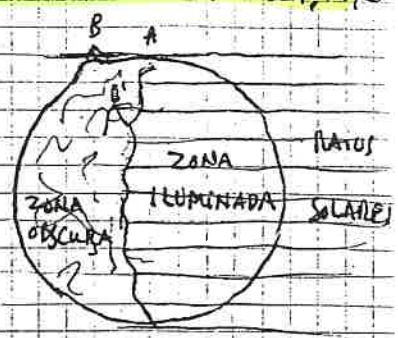 B A
B'
ZONA
ILUMINADA
RAIOS
SOLARES
ZONA
OBSCURA